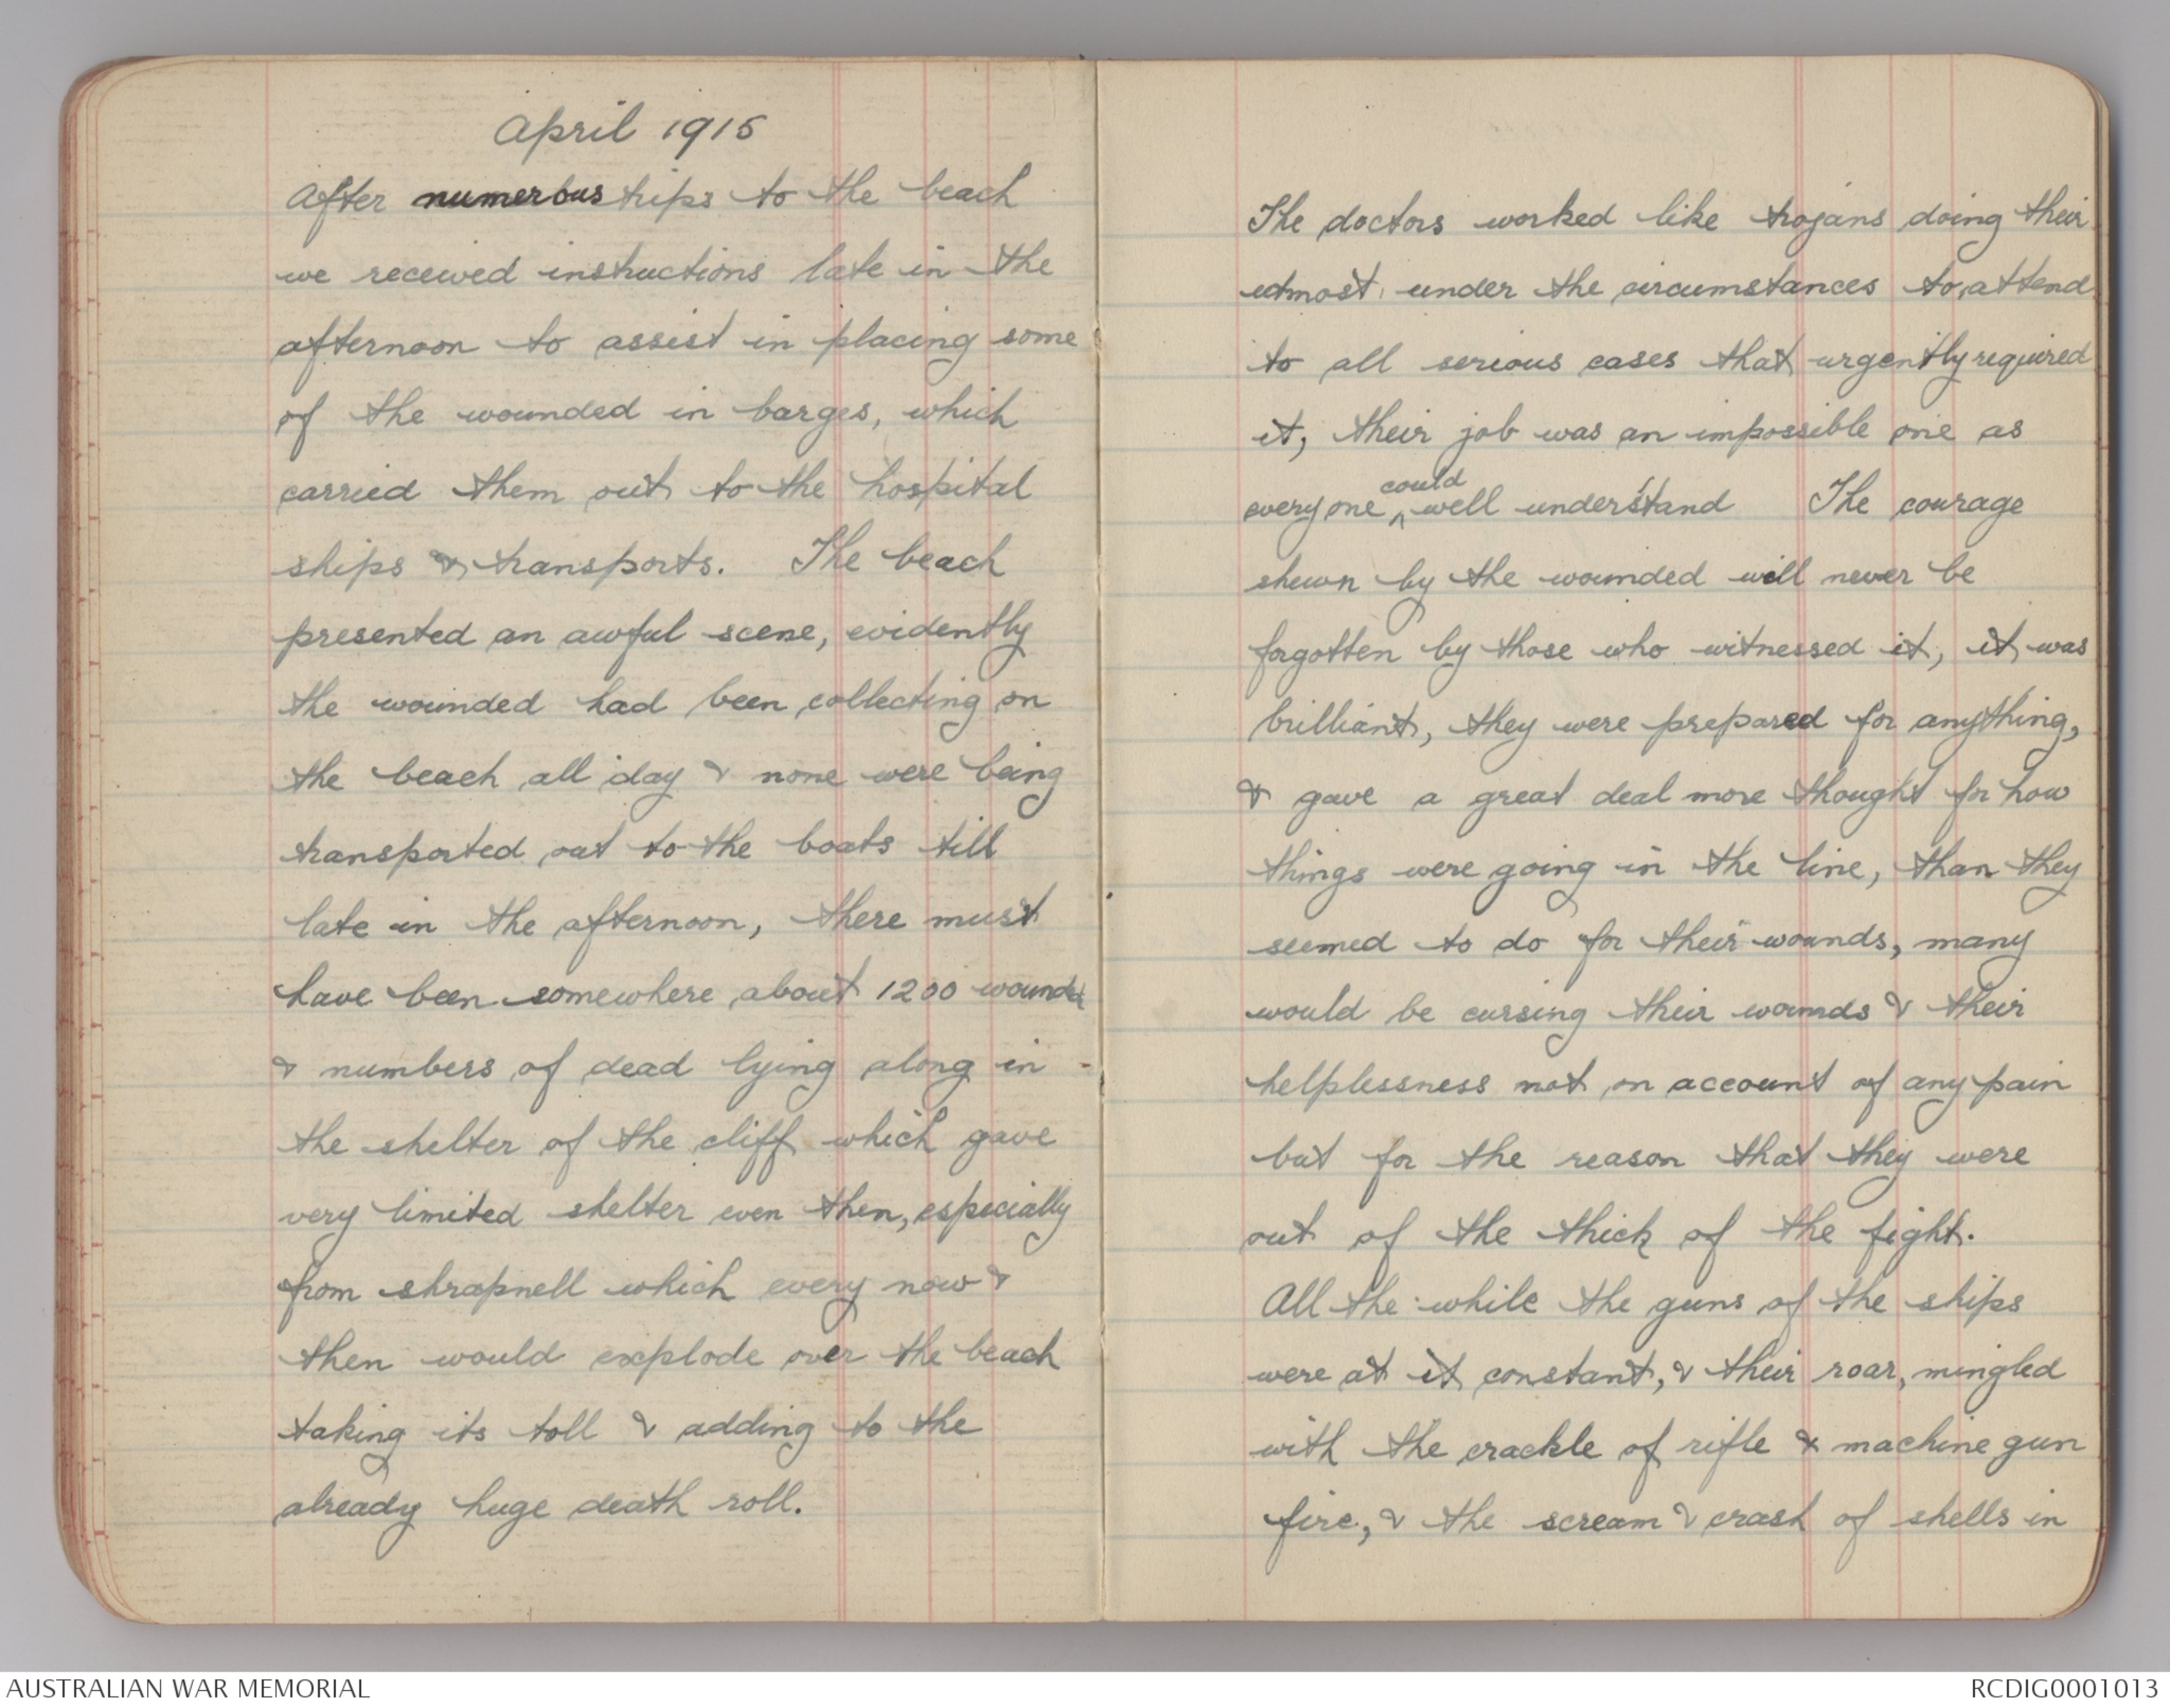 April 1915
After numerous trips to the beach
we received instructions late in the
afternoon to assist in placing some
of the wounded in barges, which
carried them out to the hospital
ships & transports. The beach
presented an awful scene, evidently
the wounded had been collecting on
the beach all day & none were being
transported out to the boats till
late in the afternoon, there must
have been somewhere about 1200 wounded
& numbers of dead lying along in
the shelter of the cliff which gave
very limited shelter even then, especially
from shrapnell which every now &
then would explode over the beach
taking its toll & adding to the
already huge death roll.
The doctors worked like trojans doing their
utmost under the circumstances to attend
to all serious cases that urgently required
it, their job was an impossible one as
everyone could well understand The courage
shewn by the wounded will never be
forgotten by those who witnessed it, it was
brilliant, they were prepared for anything,
& gave a great deal more thought for how
things were going in the line, than they
seemed to do for their wounds, many
would be cursing their wounds & their
helplessness not on account of any pain
but for the reason that they were
out of the thick of the fight.
All the while the guns of the ships
were at it constant, & their roar, mingled
with the crackle of rifle & machine gun
fire, & the scream & crash of shells in
AUSTRALIAN WAR MEMORIAL
RCDIG0001013